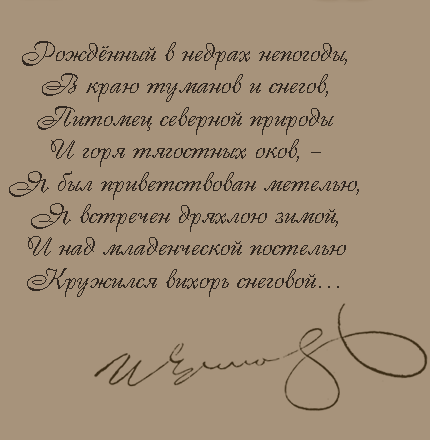 Рождённый в недрах непогоды,
В краю туманов и снегов,
Питомец северной природы
И горя тягостных оков, –
Я был приветствован метелью,
Я встречен дряхлою зимой,
И над младенческой постелью
Кружился вихорь снеговой...